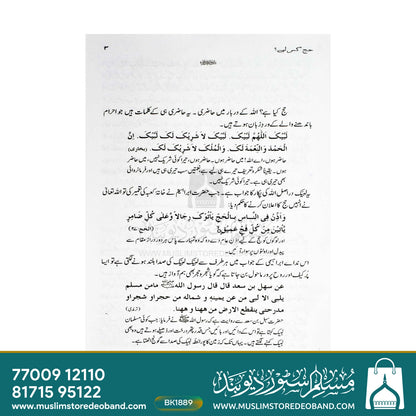 حج کس لیے؟ ۳
حج کیا ہے؟ اللہ کے دربار میں حاضری۔ یہ حاضری ہی کے کلمات ہیں جو احرام
باندھنے والے کے ورد زبان ہوتے ہیں۔
لَبَّیْکَ اَللّٰھُمَّ لَبَّیْکَ۔ لَبَّیْکَ لاَ شَرِیْکَ لَکَ لَبَّیْکَ۔ اِنَّ
الْحَمْدَ وَالنِّعْمَةَ لَکَ وَالْمُلْکَ لاَ شَرِیْکَ لَکَ۔ (بخاری)
حاضر ہوں، اے اللہ! میں حاضر ہوں۔ حاضر ہوں، تیرا کوئی شریک نہیں، میں حاضر
ہوں۔ یقیناً شکر و تعریف تیرے ہی لیے ہے، نعمتیں تیری ہی ہیں، اور فرمانروائی
بھی تیری ہی ہے۔ تیرا کوئی شریک نہیں۔
یہ لبیک دراصل اللہ کی پکار کا جواب ہے۔ جب حضرت ابراہیمؑ نے خانۂ کعبہ کی تعمیر کی تو اللہ تعالیٰ
نے انھیں حج کا اعلان کرنے کا حکم دیا:
وَاَذِّنْ فِی النَّاسِ بِالْحَجِّ یَاْتُوْکَ رِجَالاً وَّعَلٰی کُلِّ ضَامِرٍ
یَّاْتِیْنَ مِنْ کُلِّ فَجٍّ عَمِیْقٍ۔ (الحج: ۲۷)
اور لوگوں کو حج کے لیے اذن عام دے دو کہ وہ تمھارے پاس ہر دور دراز مقام سے
پیدل اور
اس ندائے ابراہیمی کے جواب میں ہر طرف سے لبیک لبیک کی صدا بلند ہونے لگتی ہے تو ایسا
پر کیف اور روح پرور ماحول بن جاتا ہے کہ گویا شجر و حجر بھی ہم آواز ہیں۔
عن سهل بن سعد قال قال رسول الله ﷺ مامن مسلم
یلبی الا لبی من عن یمینه و شماله من حجراو شجراو
مدرحتی ینقطع الارض من ههنا و ههنا۔ (ترمذی)
حضرت سہل بن سعدؓ سے روایت ہے کہ رسول اللہ ﷺ نے فرمایا: جب کوئی مسلمان
لبیک کہتا ہے تو اس کے دائیں اور بائیں جو پتھر، درخت اور ڈھیلے ہوتے ہیں وہ بھی
لبیک کہنے لگتے ہیں۔ یہاں تک کہ زمین
77009 12110
81715 95122
www.muslimstoredeoband.com
BK1889
مسلم اسٹور دیوبند
WWW.MUSLIMSTOREDEOBAND.COM